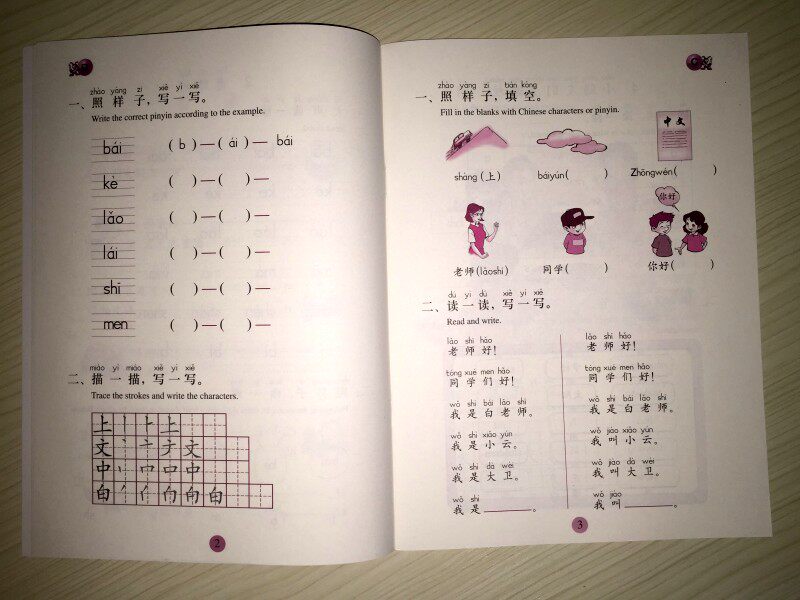 zhào yàng zi xiě yi xiě
一、照样子，写一写。
Write the correct pinyin according to the example.
bái ( b )—( ái )— bái
kè ( )—( )—
lǎo ( )—( )—
lái ( )—( )—
shī ( )—( )—
men ( )—( )—
miáo yi miáo xiě yi xiě
二、描一描，写一写。
Trace the strokes and write the characters.
上 上 上
文 文 文
中 中 中
白 白 白 白
2
zhào yàng zi tián kòng
一、照样子，填空。
Fill in the blanks with Chinese characters or pinyin.
中文
shàng (上) báiyún( ) Zhōngwén( )
你好
老师(lǎoshī) 同学( ) 你好( )
dú yi dú xiě yi xiě
二、读一读，写一写。
Read and write.
lǎo shī hǎo
老师好！
tóng xué men hǎo
同学们好！
wǒ shì bái lǎo shī
我是白老师。
wǒ shì xiǎo yún
我是小云。
wǒ shì dà wèi
我是大卫。
wǒ shì
我是______。
lǎo shī hǎo
老师好！
tóng xué men hǎo
同学们好！
wǒ shì bái lǎo shī
我是白老师。
wǒ jiào xiǎo yún
我叫小云。
wǒ jiào dà wèi
我叫大卫。
wǒ jiào
我叫______。
3